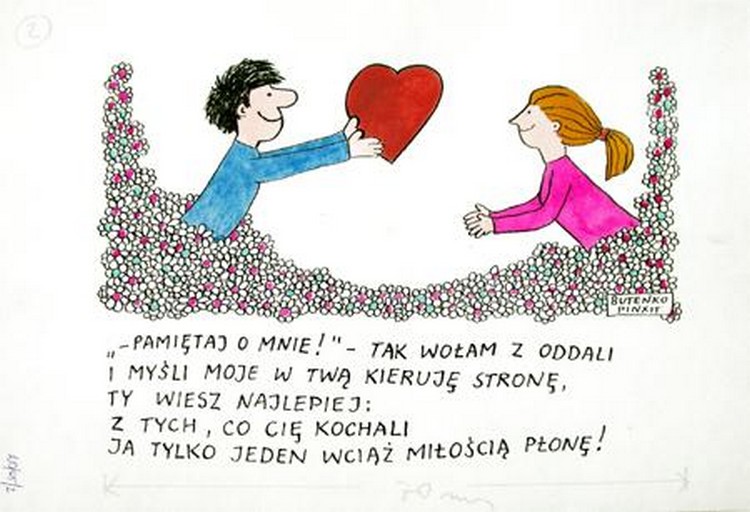 2
BUTENKO
PINXIT
„-PAMIĘTAJ O MNIE!"- TAK WOŁAM Z ODDALI
I MYŚLI MOJE W TWĄ KIERUJĘ STRONĘ,
TY WIESZ NAJLEPIEJ:
Z TYCH, CO CIĘ KOCHALI
JA TYLKO JEDEN WCIĄŻ MIŁOŚCIĄ PŁONĘ!